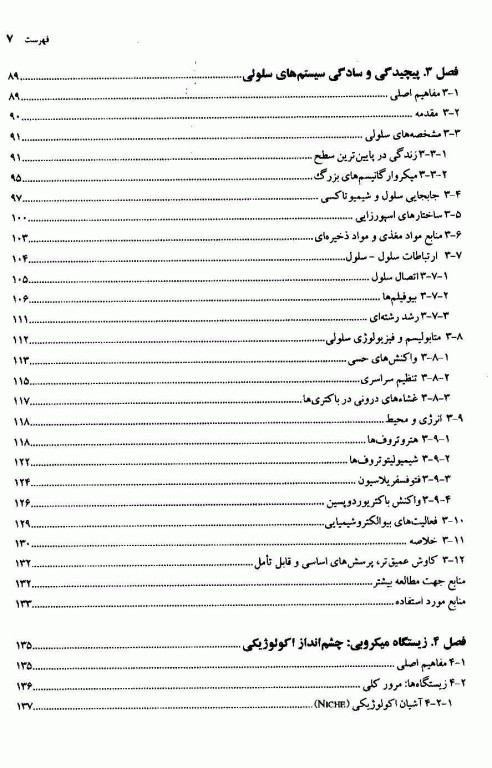 فهرست ۷
فصل ۳. پیچیدگی و سادگی سیستم‌های سلولی ۸۹
۳-۱ مفاهیم اصلی ۸۹
۳-۲ مقدمه ۹۰
۳-۳ مشخصه‌های سلولی ۹۱
۳-۳-۱ زندگی در پایین‌ترین سطح ۹۱
۳-۳-۲ میکروارگانیسم‌های بزرگ ۹۵
۳-۴ جابجایی سلول و شیمیوتاکسی ۹۷
۳-۵ ساختارهای اسپورزایی ۱۰۰
۳-۶ منابع مواد مغذی و مواد ذخیره‌ای ۱۰۳
۳-۷ ارتباطات سلول - سلول ۱۰۴
۳-۷-۱ اتصال سلول ۱۰۵
۳-۷-۲ بیوفیلم‌ها ۱۰۶
۳-۷-۳ رشد رشته‌ای ۱۱۱
۳-۸ متابولیسم و فیزیولوژی سلولی ۱۱۲
۳-۸-۱ واکنش‌های حسی ۱۱۳
۳-۸-۲ تنظیم سراسری ۱۱۵
۳-۸-۳ غشاءهای درونی در باکتری‌ها ۱۱۷
۳-۹ انرژی و محیط ۱۱۸
۳-۹-۱ هتروتروف‌ها ۱۱۸
۳-۹-۲ شیمیولیتوتروف‌ها ۱۲۲
۳-۹-۳ فتوفسفریلاسیون ۱۲۴
۳-۹-۴ واکنش باکتریوردوپسین ۱۲۶
۳-۱۰ فعالیت‌های بیوالکتروشیمیایی ۱۲۹
۳-۱۱ خلاصه ۱۳۰
۳-۱۲ کاوش عمیق‌تر، پرسش‌های اساسی و قابل تأمل ۱۳۲
منابع جهت مطالعه بیشتر ۱۳۲
منابع مورد استفاده ۱۳۳
فصل ۴. زیستگاه میکروبی: چشم‌انداز اکولوژیکی ۱۳۵
۴-۱ مفاهیم اصلی ۱۳۵
۴-۲ زیستگاه‌ها: مرور کلی ۱۳۶
۴-۲-۱ آشیان اکولوژیکی (NICHE) ۱۳۷